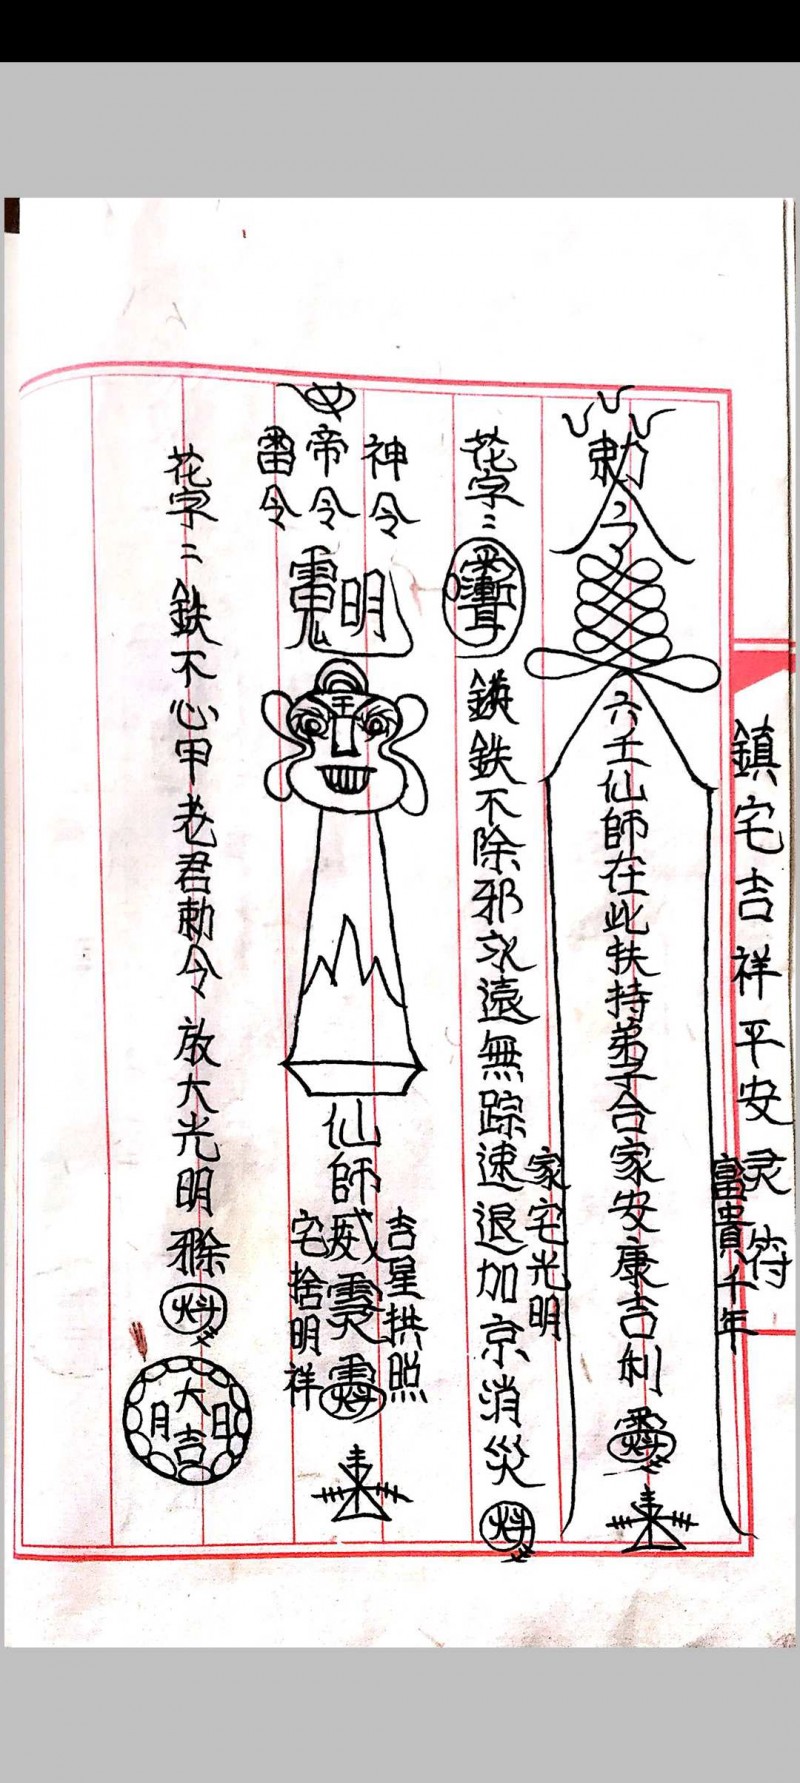 鎮宅吉祥平安灵符
富貴千年
勅令
六壬仙師在此扶持弟子合家安康吉利
家宅光明
花字:
鉄不除邪永遠無踪速退加京消災
神令
帝令
雷令
明
仙師威灵
吉星拱照
宅捨明祥
花字:鉄不心甲老君勅令放大光明
大吉
日
月